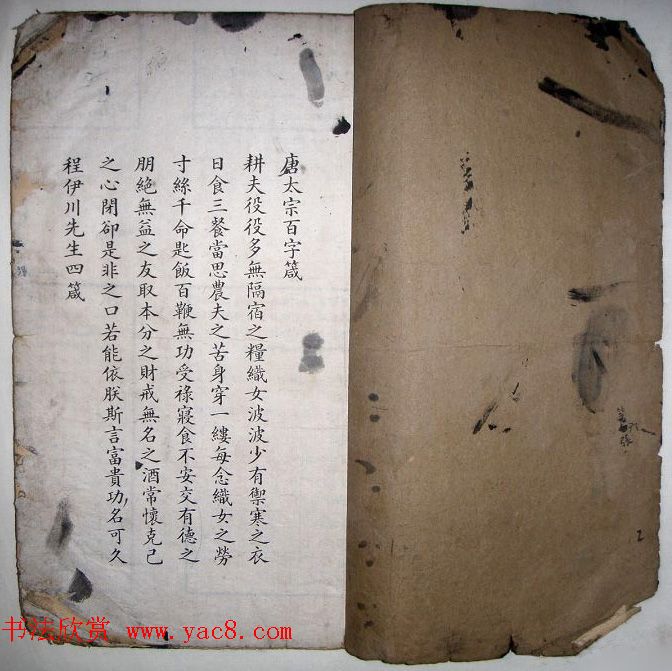 唐太宗百字箴
耕夫役役多無隔宿之糧織女波波少有禦寒之衣
日食三餐當思農夫之苦身穿一縷每念織女之勞
寸絲千命匙飯百鞭無功受祿寢食不安交有德之
朋絶無益之友取本分之財戒無名之酒常懷克己
之心閉卻是非之口若能依朕斯言富貴功名可久
程伊川先生四箴
书法欣赏 www.yac8.com